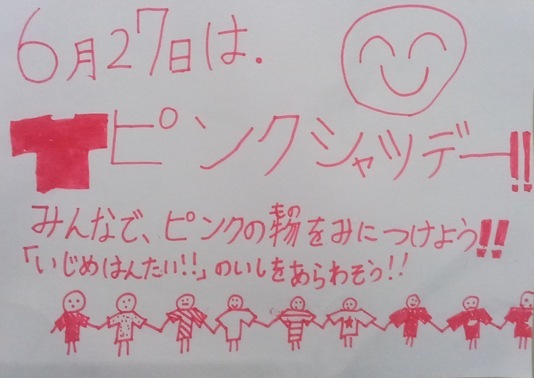 6月27日は.
ピンクシャツデー!!
みんなで、ピンクの物をみにつけよう!!
もの
「いじめはんたい!!」のいしをあらわそう!!